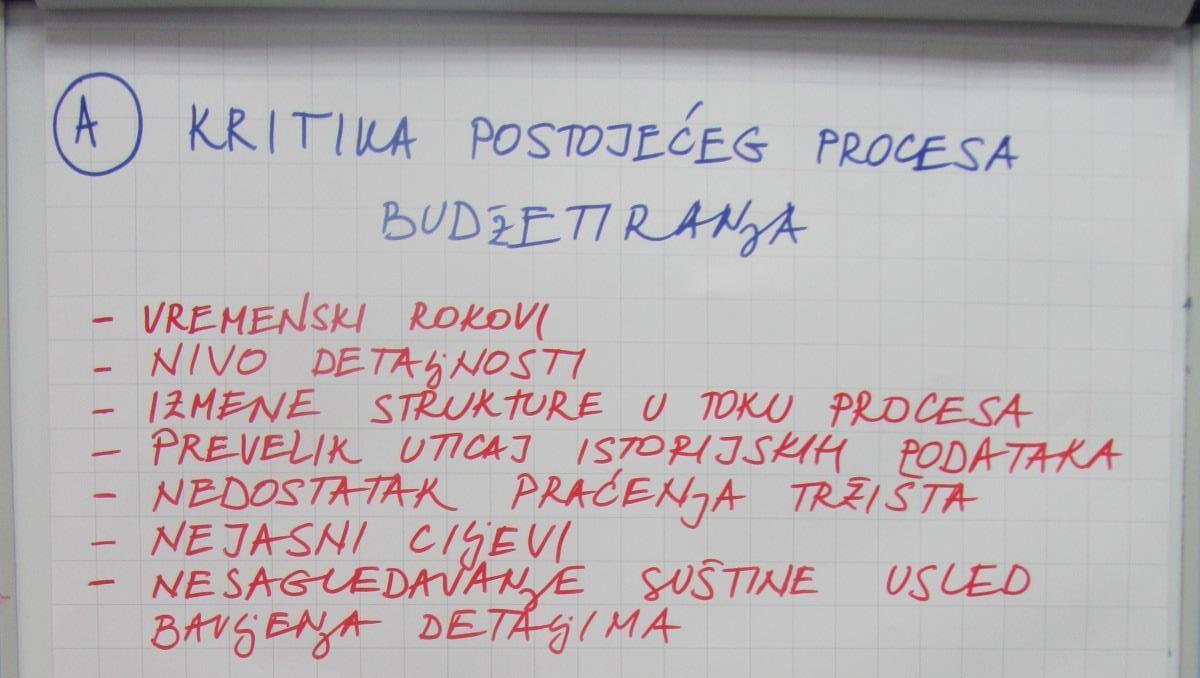 A KRITIKA POSTOJEĆEG PROCESA
BUDŽETIRANJA
- VREMENSKI ROKOVI
- NIVO DETALJNOSTI
- IZMENE STRUKTURE U TOKU PROCESA
- PREVELIK UTICAJ ISTORIJSKIH PODATAKA
- NEDOSTATAK PRAĆENJA TRŽIŠTA
- NEJASNI CILJEVI
- NESAGLEDAVANJE SUŠTINE USLED
BAVLJENJA DETALJIMA